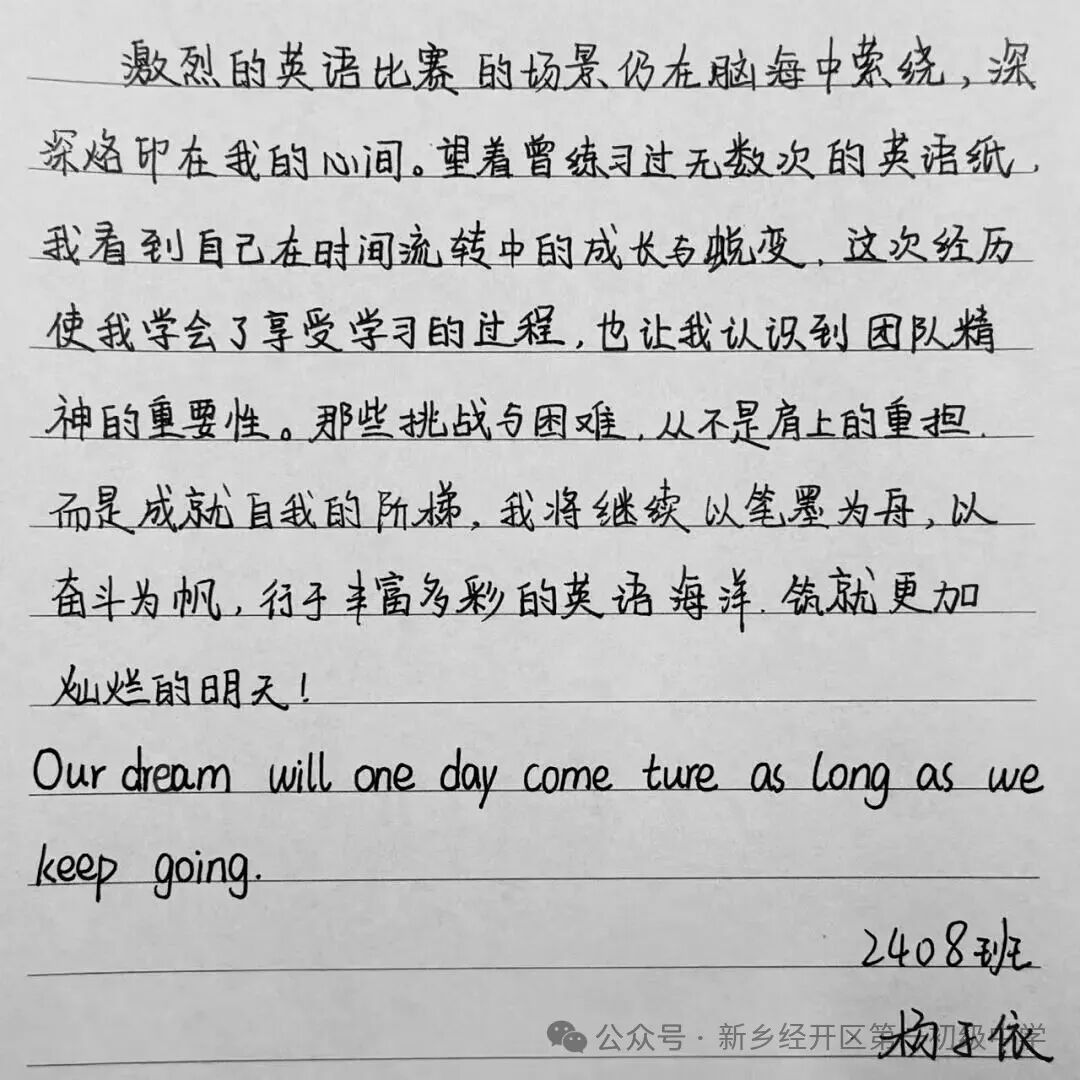 激烈的英语比赛的场景仍在脑海中萦绕，深
深烙印在我的心间。望着曾练习过无数次的英语纸，
我看到自己在时间流转中的成长与蜕变，这次经历
使我学会了享受学习的过程，也让我认识到团队精
神的重要性。那些挑战与困难，从不是肩上的重担，
而是成就自我的阶梯，我将继续以笔墨为舟，以
奋斗为帆，行于丰富多彩的英语海洋，筑就更加
灿烂的明天！
Our dream will one day come ture as long as we
keep going.
2408班
杨子依
公众号·新乡经开区第 初级中学